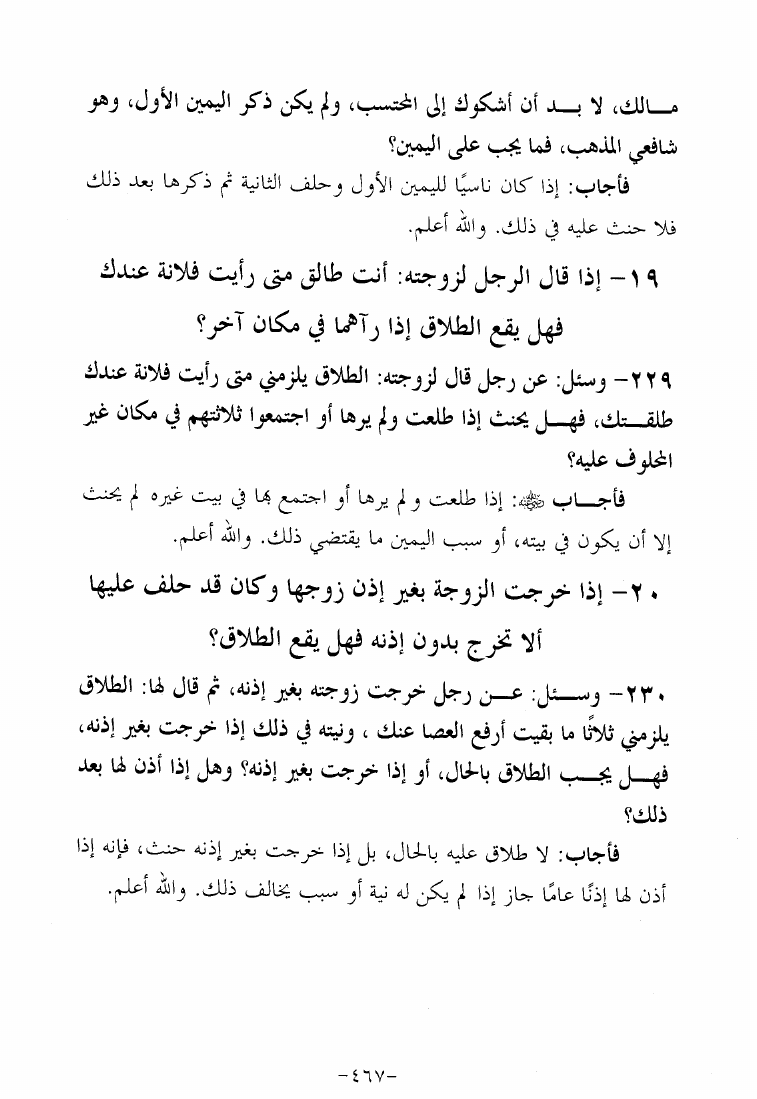 مالك، لا بد أن أشكوك إلى المحتسب، ولم يكن ذكر اليمين الأول، وهو
شافعي المذهب، فما يجب على اليمين؟
فأجاب: إذا كان ناسيًا لليمين الأول وحلف الثانية ثم ذكرها بعد ذلك
فلا حنث عليه في ذلك. والله أعلم.
١٩- إذا قال الرجل لزوجته: أنت طالق متى رأيت فلانة عندك
فهل يقع الطلاق إذا رآهما في مكان آخر؟
٢٢٩- وسئل: عن رجل قال لزوجته: الطلاق يلزمني متى رأيت فلانة عندك
طلقتك، فهل يحنث إذا طلعت ولم يرها أو اجتمعوا ثلاثتهم في مكان غير
المحلوف عليه؟
فأجاب ﷺ: إذا طلعت ولم يرها أو اجتمع بها في بيت غيره لم يحنث
إلا أن يكون في بيته، أو سبب اليمين ما يقتضي ذلك. والله أعلم.
٢٠- إذا خرجت الزوجة بغير إذن زوجها وكان قد حلف عليها
ألا تخرج بدون إذنه فهل يقع الطلاق؟
٢٣٠- وسئل: عن رجل خرجت زوجته بغير إذنه، ثم قال لها: الطلاق
يلزمني ثلاثًا ما بقيت أرفع العصا عنك ، ونيته في ذلك إذا خرجت بغير إذنه،
فهل يجب الطلاق بالحال، أو إذا خرجت بغير إذنه؟ وهل إذا أذن لها بعد
ذلك؟
فأجاب: لا طلاق عليه بالحال، بل إذا خرجت بغير إذنه حنث، فإنه إذا
أذن لها إذنًا عامًا جاز إذا لم يكن له نية أو سبب يخالف ذلك. والله أعلم.
-٤٦٧-